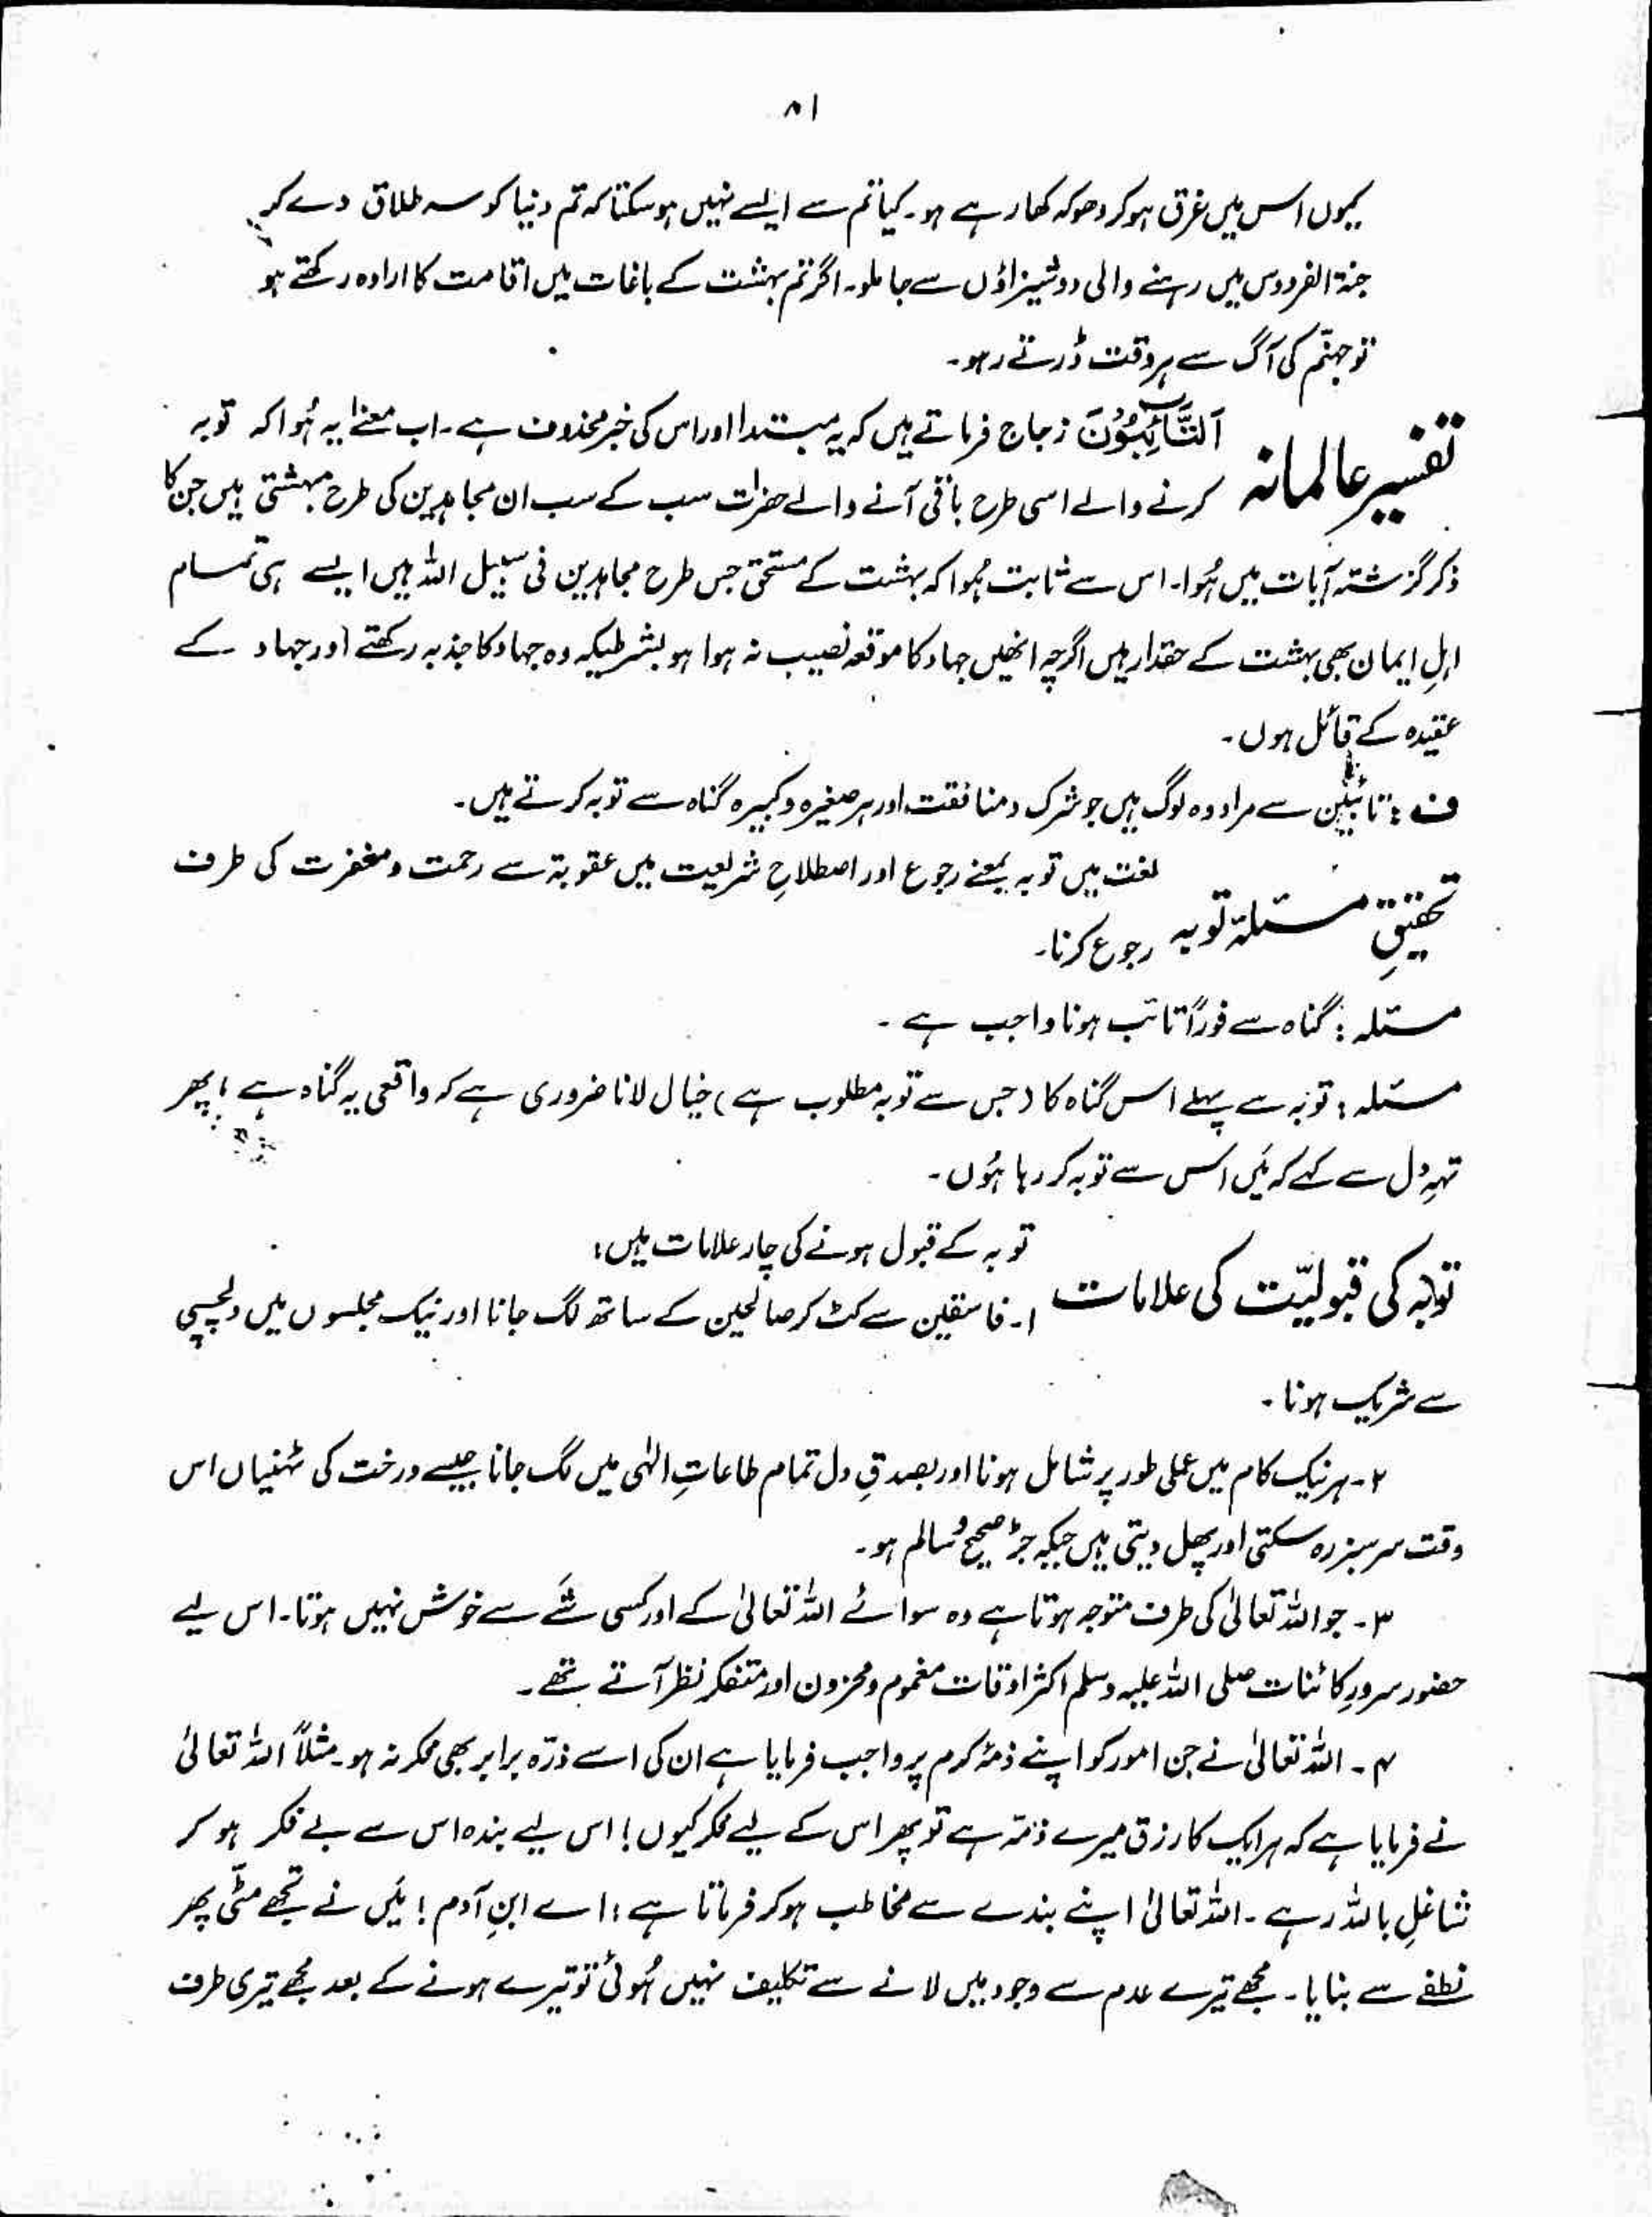 ۸۱
کیوں اس میں غرق ہو کر دھوکہ کھا رہے ہو۔ کیا تم سے ایسے نہیں ہو سکتا کہ تم دنیا کو سہ طلاق دے کر
جنۃ الفردوس میں رہنے والی دوشیزاؤں سے جا ملو۔ اگر تم بہشت کے باغات میں اقامت کا ارادہ رکھتے ہو
تو جہنّم کی آگ سے ہر وقت ڈرتے رہو۔
تفسیر عالمانہ
اَلتَّآئِبُوْنَ زجاج فرماتے ہیں کہ یہ مبتدا اور اس کی خبر محذوف ہے۔ اب معنٰے یہ ہُوا کہ توبہ
کرنے والے اسی طرح باقی آنے والے حضرات سب کے سب ان مجاہدین کی طرح بہشتی ہیں جن کا
ذکر گزشتہ آیات میں ہُوا۔ اس سے ثابت ہُوا کہ بہشت کے مستحق جس طرح مجاہدین فی سبیل اللہ ہیں ایسے ہی تمام
اہلِ ایمان بھی بہشت کے حقدار ہیں اگرچہ انھیں جہاد کا موقعہ نصیب نہ ہوا ہو بشرطیکہ وہ جہاد کا جذبہ رکھتے اور جہاد کے
عقیدہ کے قائل ہوں۔
ف : تائبین سے مراد وہ لوگ ہیں جو شرک و منافقت اور ہر صغیرہ و کبیرہ گناہ سے توبہ کرتے ہیں۔
تحقیقِ مسئلہ توبہ
لغت میں توبہ بمعنے رجوع اور اصطلاحِ شریعت میں عقوبۃ سے رحمت و مغفرت کی طرف
رجوع کرنا۔
مسئلہ : گناہ سے فوراً تائب ہونا واجب ہے۔
مسئلہ : توبہ سے پہلے اس گناہ کا (جس سے توبہ مطلوب ہے) خیال لانا ضروری ہے کہ واقعی یہ گناہ ہے ! پھر
تہہِ دل سے کہے کہ میَں اس سے توبہ کر رہا ہُوں۔
توبہ کی قبولیّت کی علامات
توبہ کے قبول ہونے کی چار علامات ہیں :
۱۔ فاسقین سے کٹ کر صالحین کے ساتھ لگ جانا اور نیک مجلسوں میں دلچسپی
سے شریک ہونا۔
۲۔ ہر نیک کام میں عملی طور پر شامل ہونا اور بصدقِ دل تمام طاعاتِ الٰہی میں لگ جانا جیسے درخت کی ٹہنیاں اس
وقت سرسبز رہ سکتی اور پھل دیتی ہیں جبکہ جڑ صحیح و سالم ہو۔
۳۔ جو اللہ تعالیٰ کی طرف متوجہ ہوتا ہے وہ سوائے اللہ تعالیٰ کے اور کسی شَے سے خوش نہیں ہوتا۔ اس لیے
حضور سرورِ کائنات صلی اللہ علیہ وسلم اکثر اوقات مغموم و محزون اور متفکر نظر آتے تھے۔
۴۔ اللہ تعالیٰ نے جن امور کو اپنے ذمّہ کرم پر واجب فرمایا ہے ان کی اسے ذرّہ برابر بھی فکر نہ ہو۔ مثلاً اللہ تعالیٰ
نے فرمایا ہے کہ ہر ایک کا رزق میرے ذمّہ ہے تو پھر اس کے لیے فکر کیوں ! اس لیے بندہ اس سے بے فکر ہو کر
شاغل باللہ رہے۔ اللہ تعالیٰ اپنے بندے سے مخاطب ہو کر فرماتا ہے : اے ابنِ آدم ! میَں نے تجھے مٹّی پھر
نطفے سے بنایا۔ مجھے تیرے عدم سے وجود میں لانے سے تکلیف نہیں ہُوئی تو تیرے ہونے کے بعد مجھے تیری طرف